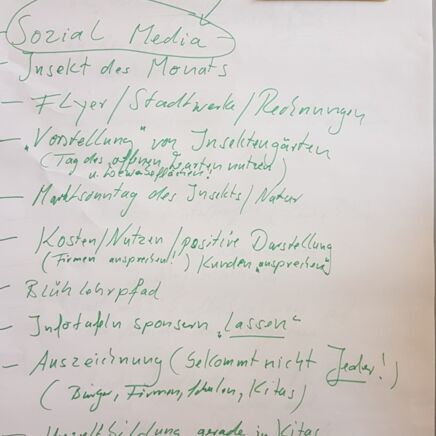 Sozial Media
- Insekt des Monats
- Flyer/Stadtwerke/Rechnungen
- „Vorstellung" von Insektengärten
(Tag des offenen Garten nutzen)
u.
- Marktsonntag des Insekts/Natur
- Kosten/Nutzen/positive Darstellung
(Firmen ansprechen!) Kunden „ansprechen"
- Blühlehrpfad
- Infotafeln sponsern „lassen"
- Auszeichnung (bekommt nicht Jeder!)
(Bürger, Firmen, Schulen, Kitas)
- Umweltbildung gerade in Kitas